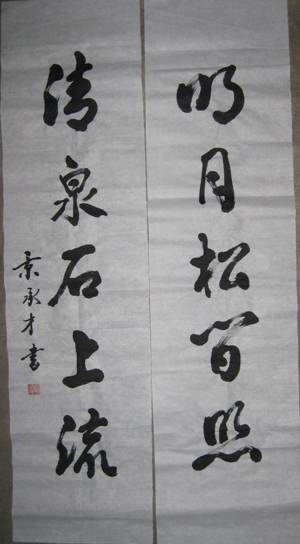 明月松間照
清泉石上流
承才書